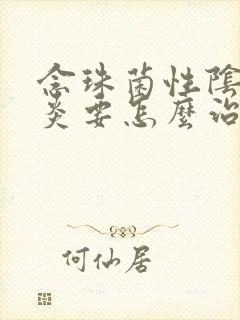 念珠菌性陰
炎要怎麼治
何仙居